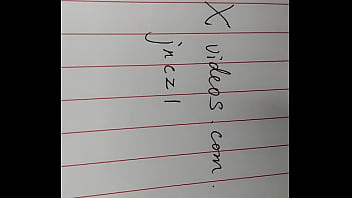 X videos.com.
jnczl